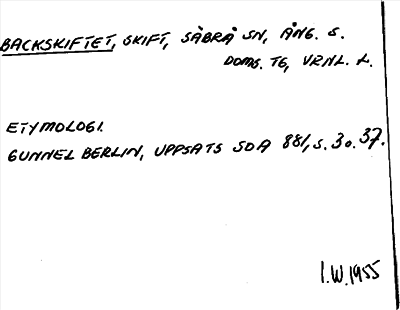 BACKSKIFTET, SKIFT, SÄBRÅ SN, ÅNG. S.
DOMS. TG, VRNL. L.
ETYMOLOGI.
GUNNEL BERLIN, UPPSATS SOA 881, S. 30. 37.
I.W. 1955